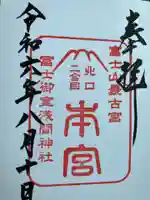 奉拝
富士山最古宮
北口
二合目
本宮
冨士御室浅間神社
令和六年八月十日